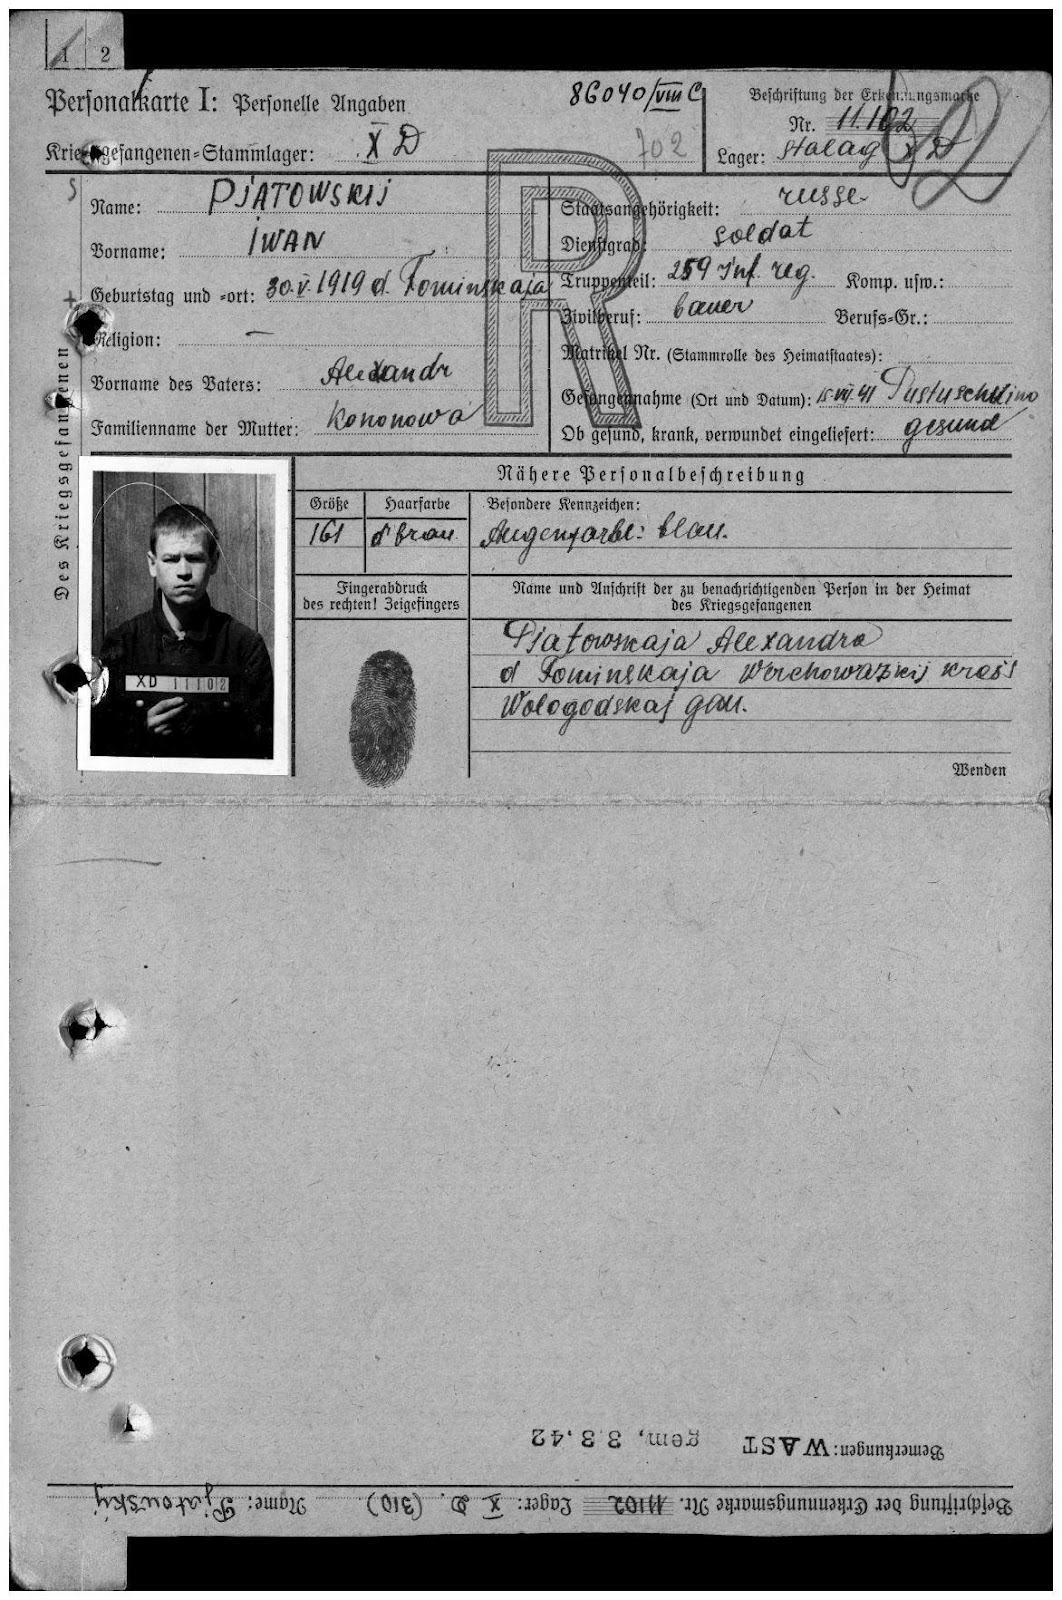 1 2
Personalkarte I: Personelle Angaben
Kriegsgefangenen=Stammlager: X D
86040/VIII C
702
Beschriftung der Erkennungsmarke
Nr. 11.102
Lager: Stalag X D
R
Des Kriegsgefangenen
Name: PJATOWSKIJ
Vorname: IWAN
Geburtstag und =ort: 30.V.1919 d. Fominskaja
Religion: —
Vorname des Vaters: Alexandr
Familienname der Mutter: Kononowa
Staatsangehörigkeit: russe
Dienstgrad: Soldat
Truppenteil: 259 Inf. reg. Komp. usw.:
Zivilberuf: bauer Berufs=Gr.:
Matrikel Nr. (Stammrolle des Heimatstaates):
Gefangennahme (Ort und Datum): 15.VII.41 Pustuschkino
Ob gesund, krank, verwundet eingeliefert: gesund
Nähere Personalbeschreibung
Größe Haarfarbe Besondere Kennzeichen:
161 d'brau. Augenfarbe: blau.
XD 11102
Fingerabdruck
des rechten! Zeigefingers
Name und Anschrift der zu benachrichtigenden Person in der Heimat
des Kriegsgefangenen
Pjatowskaja Alexandra
d Fominskaja Werchowazkij kreis
Wologodskaj gau.
Wenden
Bemerkungen: WAST gem, 3.3.42
Beschriftung der Erkennungsmarke Nr. 11102 Lager: X D. (310) Name: Pjatowskij